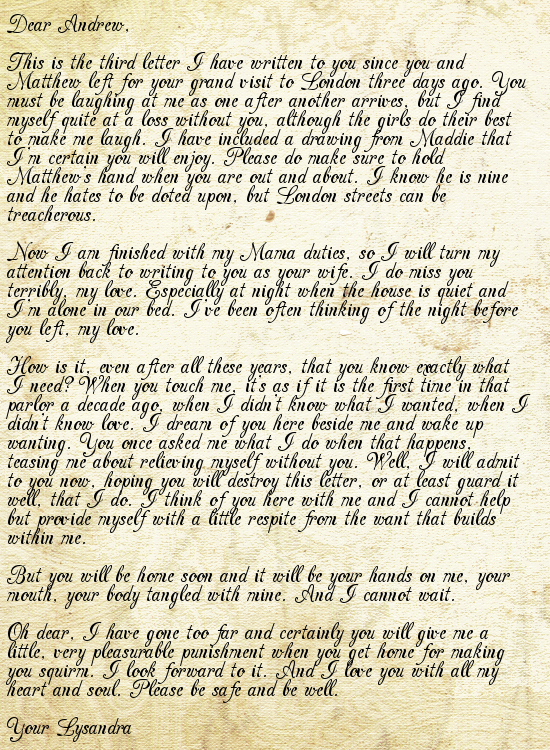 Dear Andrew,
This is the third letter I have written to you since you and
Matthew left for your grand visit to London three days ago. You
must be laughing at me as one after another arrives, but I find
myself quite at a loss without you, although the girls do their best
to make me laugh. I have included a drawing from Maddie that
I'm certain you will enjoy. Please do make sure to hold
Matthew's hand when you are out and about. I know he is nine
and he hates to be doted upon, but London streets can be
treacherous.
Now I am finished with my Mama duties, so I will turn my
attention back to writing to you as your wife. I do miss you
terribly, my love. Especially at night when the house is quiet and
I'm alone in our bed. I've been often thinking of the night before
you left, my love.
How is it, even after all these years, that you know exactly what
I need? When you touch me, it's as if it is the first time in that
parlor a decade ago, when I didn't know what I wanted, when I
didn't know love. I dream of you here beside me and wake up
wanting. You once asked me what I do when that happens,
teasing me about relieving myself without you. Well, I will admit
to you now, hoping you will destroy this letter, or at least guard it
well, that I do. I think of you here with me and I cannot help
but provide myself with a little respite from the want that builds
within me.
But you will be home soon and it will be your hands on me, your
mouth, your body tangled with mine. And I cannot wait.
Oh dear, I have gone too far and certainly you will give me a
little, very pleasurable punishment when you get home for making
you squirm. I look forward to it. And I love you with all my
heart and soul. Please be safe and be well.
Your Lysandra